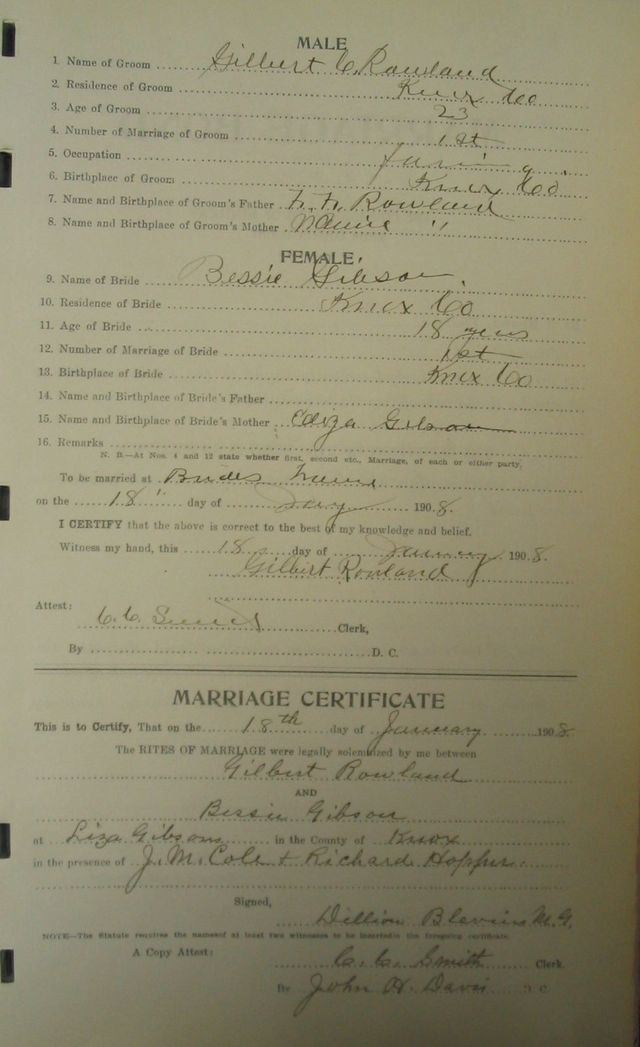 MALE
1. Name of Groom Gilbert C. Rowland
2. Residence of Groom Knox Co
3. Age of Groom 23
4. Number of Marriage of Groom 1st
5. Occupation
6. Birthplace of Groom Knox Co
7. Name and Birthplace of Groom's Father Rowland
8. Name and Birthplace of Groom's Mother "
FEMALE
9. Name of Bride Bessie Gibson.
10. Residence of Bride Knox Co
11. Age of Bride 18 years
12. Number of Marriage of Bride 1st
13. Birthplace of Bride Knox Co
14. Name and Birthplace of Bride's Father
15. Name and Birthplace of Bride's Mother Gibson
16. Remarks
N. B.—At Nos. 4 and 12 state whether first, second etc., Marriage, of each or either party.
To be married at Brides
on the 18" day of Jany 1908.
I CERTIFY that the above is correct to the best of my knowledge and belief.
Witness my hand, this 18 day of January 1908.
Gilbert Rowland
Attest:
C. C. Smith Clerk,
By D. C.
MARRIAGE CERTIFICATE
This is to Certify, That on the 18th day of January 1908
The RITES OF MARRIAGE were legally solemnized by me between
Gilbert Rowland
AND
Bessie Gibson
at Liza Gibsons in the County of Knox
in the presence of J. M. Cole + Richard Hopper
Signed,
Dillion Blevins M. G.
NOTE—The Statute requires the names of at least two witnesses to be inserted in the foregoing certificate.
A Copy Attest:
C. C. Smith Clerk
By John H. Davis D C